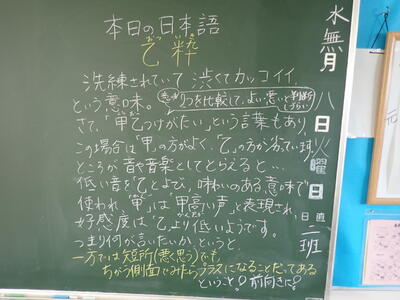 本日の日本語
乙粋
洗練されていて渋くてカッコイイ、
という意味。
意味 2つを比較して、よい悪いと判断しづらい
さて、「甲乙つけがたい」という言葉もあり、
この場合は「甲」の方がよく、「乙」の方が劣っています。
ところが音を音楽としてとらえると…
低い音を「乙」とよび、味わいのある意味で
使われ、「甲」は「甲高い声」と表現され、
好感度は「乙」より低いようです。
つまり何が言いたいか、というと、
一方では短所(悪く思う)でも
ちがう側面でみたらプラスになることだってある
ということ♡前向きに♡
水無月
八日
火曜日
日直
二班
元